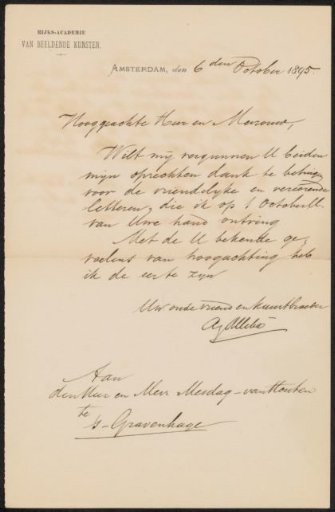 RIJKS-ACADEMIE
VAN BEELDENDE KUNSTEN.
AMSTERDAM, den 6den October 1895.
Hooggeachte Heer en Mevrouw,
Wilt mij vergunnen U beiden
mijn oprechten dank te betuigen
voor de vriendelijke en vereerende
letteren, die ik op 1 October ll.
van Uwe hand ontving
Met de U bekende ge-
voelens van hoogachting heb
ik de eer te zijn
Uw oude vriend en kunstbroeder
Aug Allebé
Aan
den Heer en Mevr Mesdag-van Houten
te
's-Gravenhage